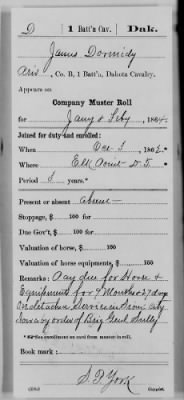 D | 1 Batt'n Cav. | Dak.
James Dormidy
, Co. B, 1 Batt'n, Dakota Cavalry.
Appears on
Company Muster Roll
for Jany & Feby, 1864.
Joined for duty and enrolled:
When Dec 3, 186
Where Elk Point D.T.
Period 3 years.*
Present or absent absent
Stoppage, $ 100 for
Due Gov't, $ 100 for
Valuation of horse, $ 100
Valuation of horse equipments, $ 100
Remarks: Pay due for Horse &
Equipments for 7 Months 27 days
On detached Service in Sioux City
Iowa by order of Brig Genl Sully
Book mark:
S. P. York
Copyist.